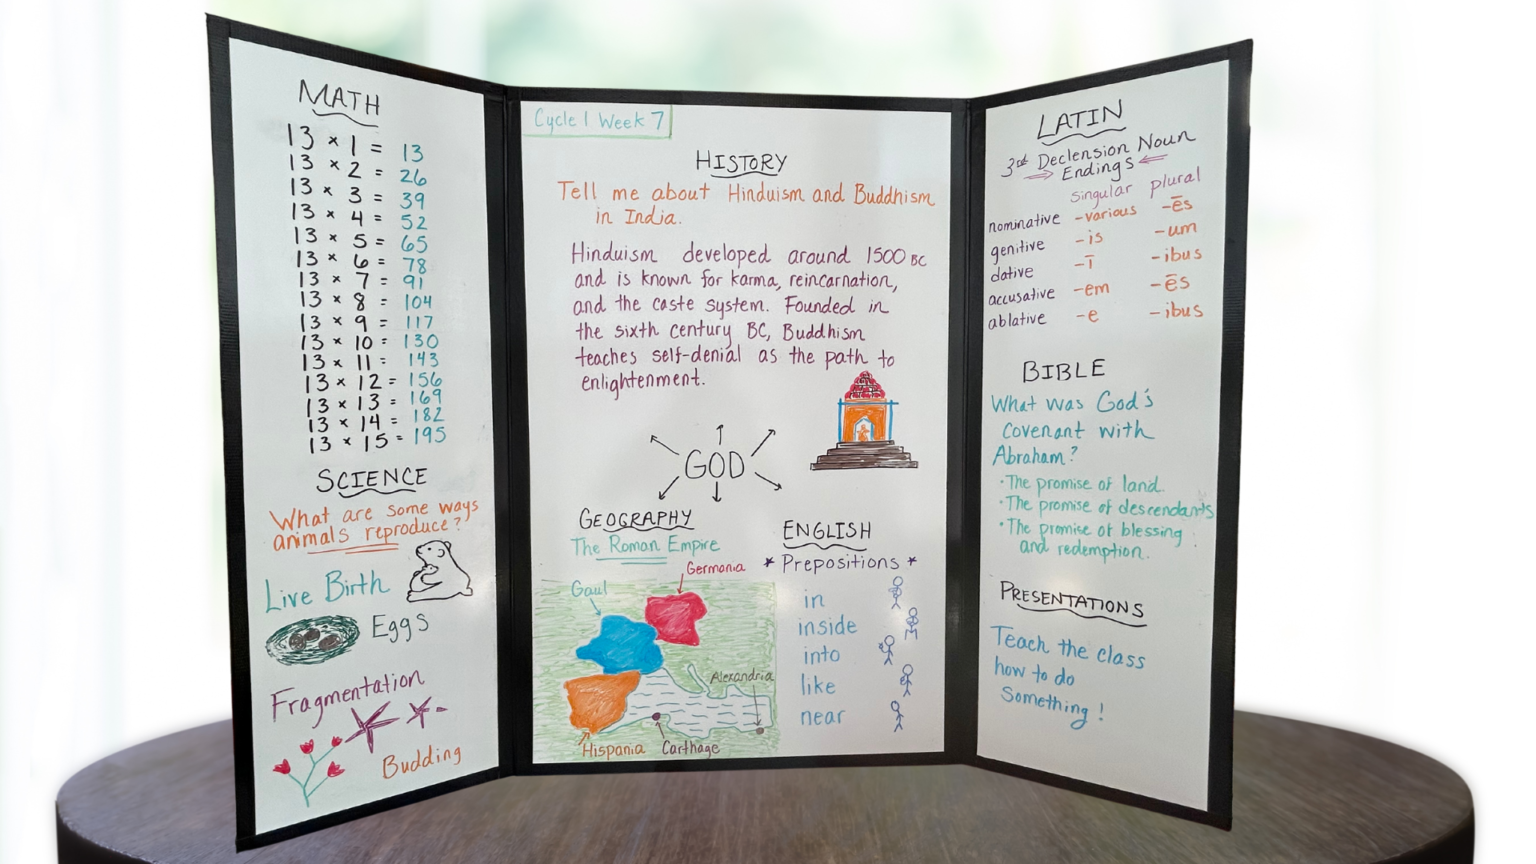 MATH
13 × 1 = 13
13 × 2 = 26
13 × 3 = 39
13 × 4 = 52
13 × 5 = 65
13 × 6 = 78
13 × 7 = 91
13 × 8 = 104
13 × 9 = 117
13 × 10 = 130
13 × 11 = 143
13 × 12 = 156
13 × 13 = 169
13 × 14 = 182
13 × 15 = 195
SCIENCE
What are some ways
animals reproduce?
Live Birth
Eggs
Fragmentation
Budding
Cycle 1 Week 7
HISTORY
Tell me about Hinduism and Buddhism
in India.
Hinduism developed around 1500 BC
and is known for karma, reincarnation,
and the caste system. Founded in
the sixth century BC, Buddhism
teaches self-denial as the path to
enlightenment.
GOD
GEOGRAPHY
The Roman Empire
Germania
Gaul
Alexandria
Hispania
Carthage
ENGLISH
* Prepositions *
in
inside
into
like
near
LATIN
3rd Declension Noun
Endings
singular plural
nominative -various -ēs
genitive -is -um
dative -ī -ibus
accusative -em -ēs
ablative -e -ibus
BIBLE
What was God's
Covenant with
Abraham?
· The promise of land.
· The promise of descendants
· The promise of blessing
and redemption.
PRESENTATIONS
Teach the class
how to do
Something!